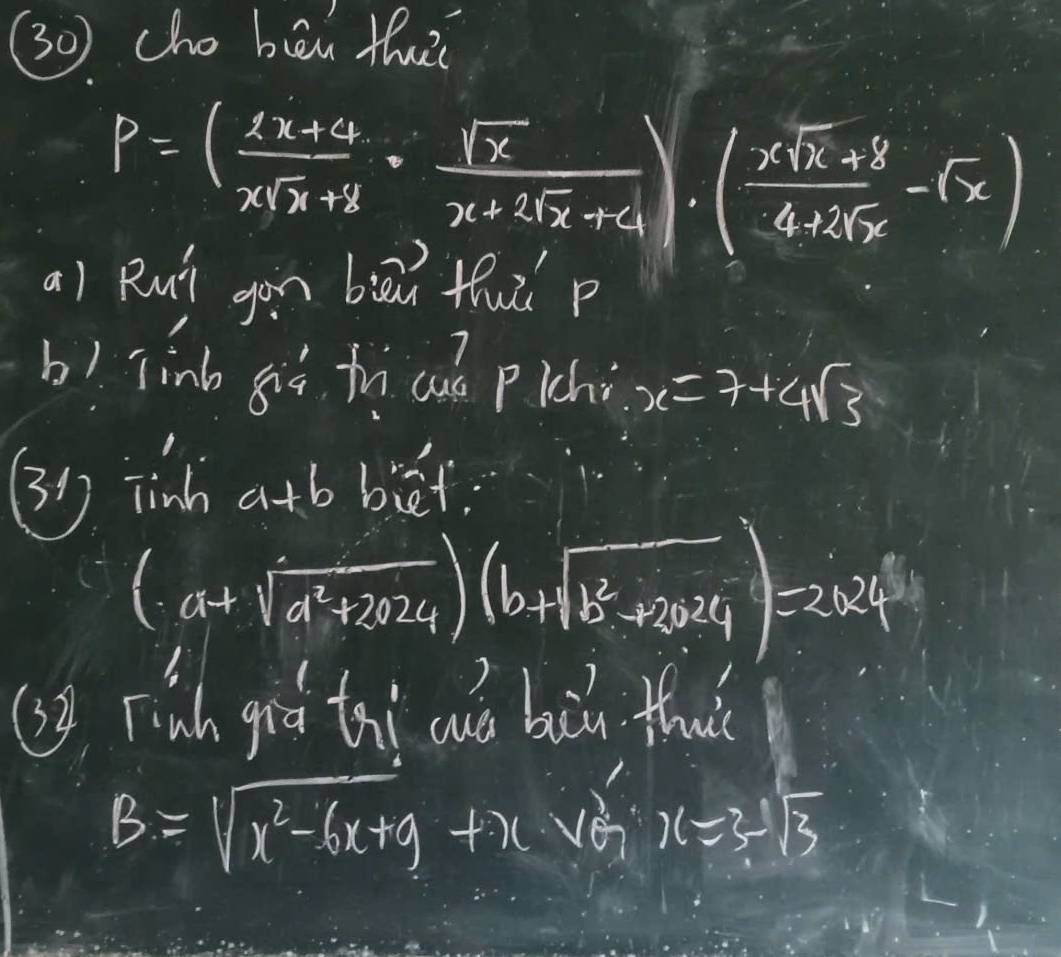 (30). Cho biểu thức
P = ( \frac{2x+4}{x\sqrt{x}+8} \cdot \frac{\sqrt{x}}{x+2\sqrt{x}+4} ) . ( \frac{x\sqrt{x}+8}{4+2\sqrt{x}} - \sqrt{x} )
a) Rút gọn biểu thức P
b) Tính giá trị của P khi x = 7+4\sqrt{3}
(31) Tính a+b biết:
( a+ \sqrt{a^2+2024} ) ( b+ \sqrt{b^2+2024} ) = 2024
(32). Tính giá trị của biểu thức
B = \sqrt{x^2-6x+9} + x với x = 3-\sqrt{3}